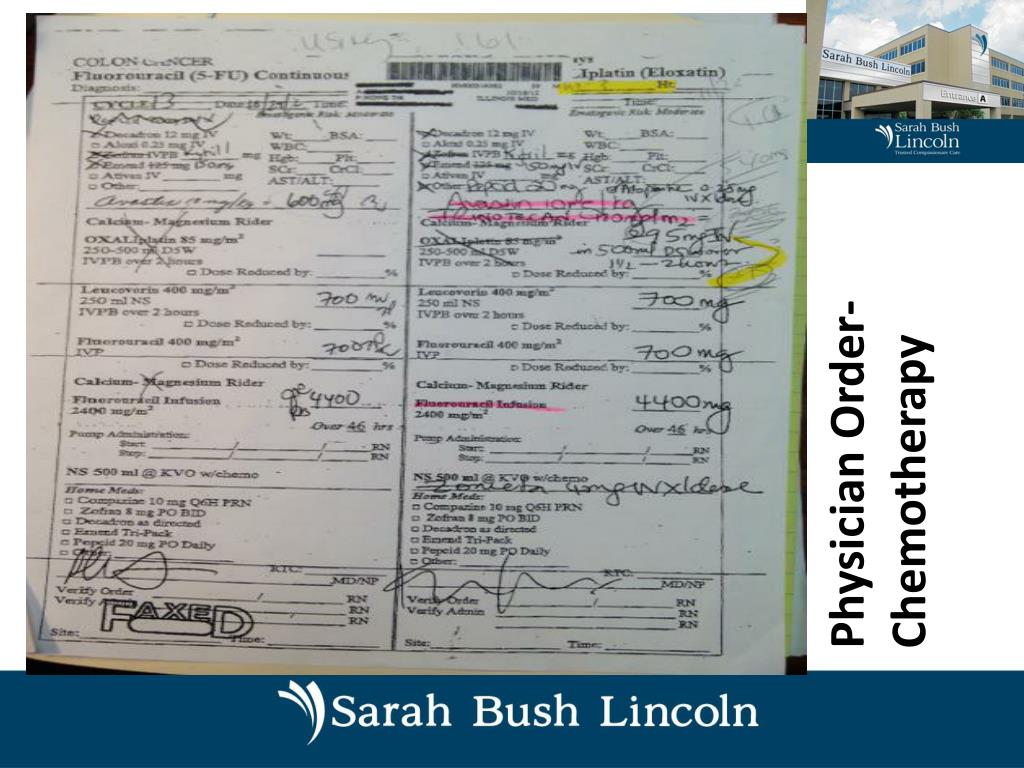 COLON CANCER
Fluorouracil (5-FU) Continuous
Iplatin (Eloxatin)
Diagnosis:
ILLINOIS MED
CYCLE 13 Date Time:
Emetogenic Risk: Moderate
Decadron 12 mg IV Wt: BSA:
Aloxi 0.25 mg IV WBC:
Zofran IVPB mg Hgb: Plt:
Emend 125 mg SCr: CrCl:
Ativan IV mg AST/ALT:
Other:
600mg
Calcium- Magnesium Rider
OXALIplatin 85 mg/m²
250-500 ml D5W
IVPB over 2 hours
Dose Reduced by: %
Leucovorin 400 mg/m² 700
250 ml NS
IVPB over 2 hours
Dose Reduced by: %
Fluorouracil 400 mg/m² 700
IVP
Dose Reduced by: %
Calcium- Magnesium Rider
Fluorouracil Infusion 4400
2400 mg/m²
Over 46 hrs
Pump Administration:
Start: / / RN
Stop: / / RN
NS 500 ml @ KVO w/chemo
Home Meds:
Compazine 10 mg Q6H PRN
Zofran 8 mg PO BID
Decadron as directed
Emend Tri-Pack
Pepcid 20 mg PO Daily
Other:
RTC:
MD/NP
Verify Order RN
Verify RN
FAXED
RN
Site: Time:
Time:
Emetogenic Risk: Moderate
Decadron 12 mg IV Wt: BSA:
Aloxi 0.25 mg IV WBC:
Zofran IVPB mg Hgb: Plt:
Emend 125 mg SCr: CrCl:
Ativan IV mg AST/ALT:
Other: Pepcid 20 mg Atropine 0.25mg
IV X 1 dose
Avastin
Calcium- Magnesium Rider
OXALIplatin 85 mg/m² 295mg IV
250-500 ml D5W in 500ml D5W
IVPB over 2 hours
Dose Reduced by: %
Leucovorin 400 mg/m² 700 mg
250 ml NS
IVPB over 2 hours
Dose Reduced by: %
Fluorouracil 400 mg/m² 700 mg
IVP
Dose Reduced by: %
Calcium- Magnesium Rider
Fluorouracil Infusion 4400 mg
2400 mg/m²
Over 46 hrs
Pump Administration:
Start: / / RN
Stop: / / RN
NS 500 ml @ KVO w/chemo
Zometa 4mg IV X 1 dose
Home Meds:
Compazine 10 mg Q6H PRN
Zofran 8 mg PO BID
Decadron as directed
Emend Tri-Pack
Pepcid 20 mg PO Daily
Other:
RTC:
MD/NP
Verify Order RN
Verify Admin RN
RN
Site: Time:
Sarah Bush Lincoln
Entrance A
Sarah Bush
Lincoln
Trusted Compassionate Care
Physician Order-
Chemotherapy
Sarah Bush Lincoln